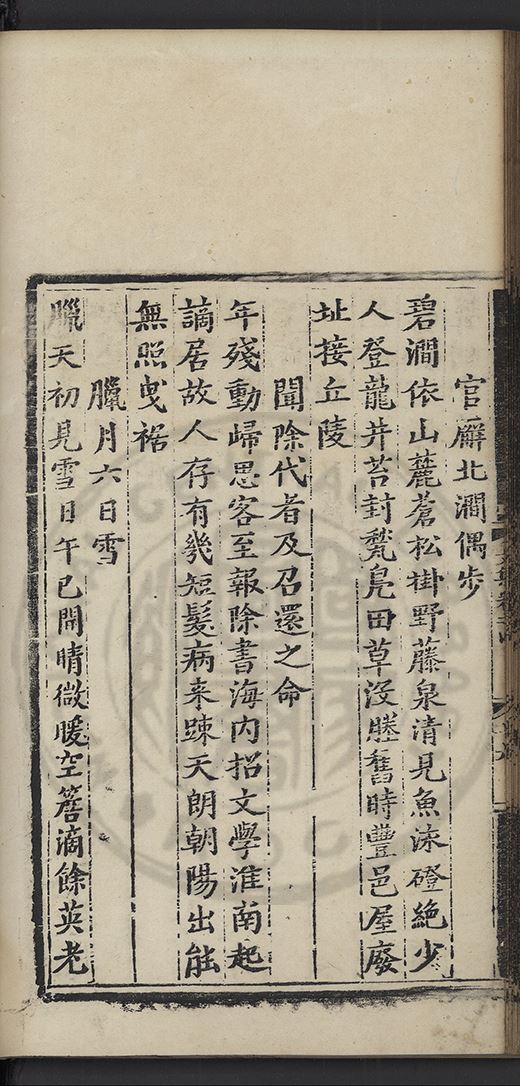 官廨北澗偶步
碧澗依山麓蒼松掛野藤泉清見魚涑磴絶少
人登龍井苔封甃鳧田草没塍舊時豐邑屋廢
址接丘陵
聞除代者及召還之命
年殘動歸思客至報除書海内招文學淮南起
謫居故人存有幾短髮病来踈天朗朝陽出能
無照曵裾
臘月六日雪
臘天初見雪日午已開晴微暖空簷滴餘英老